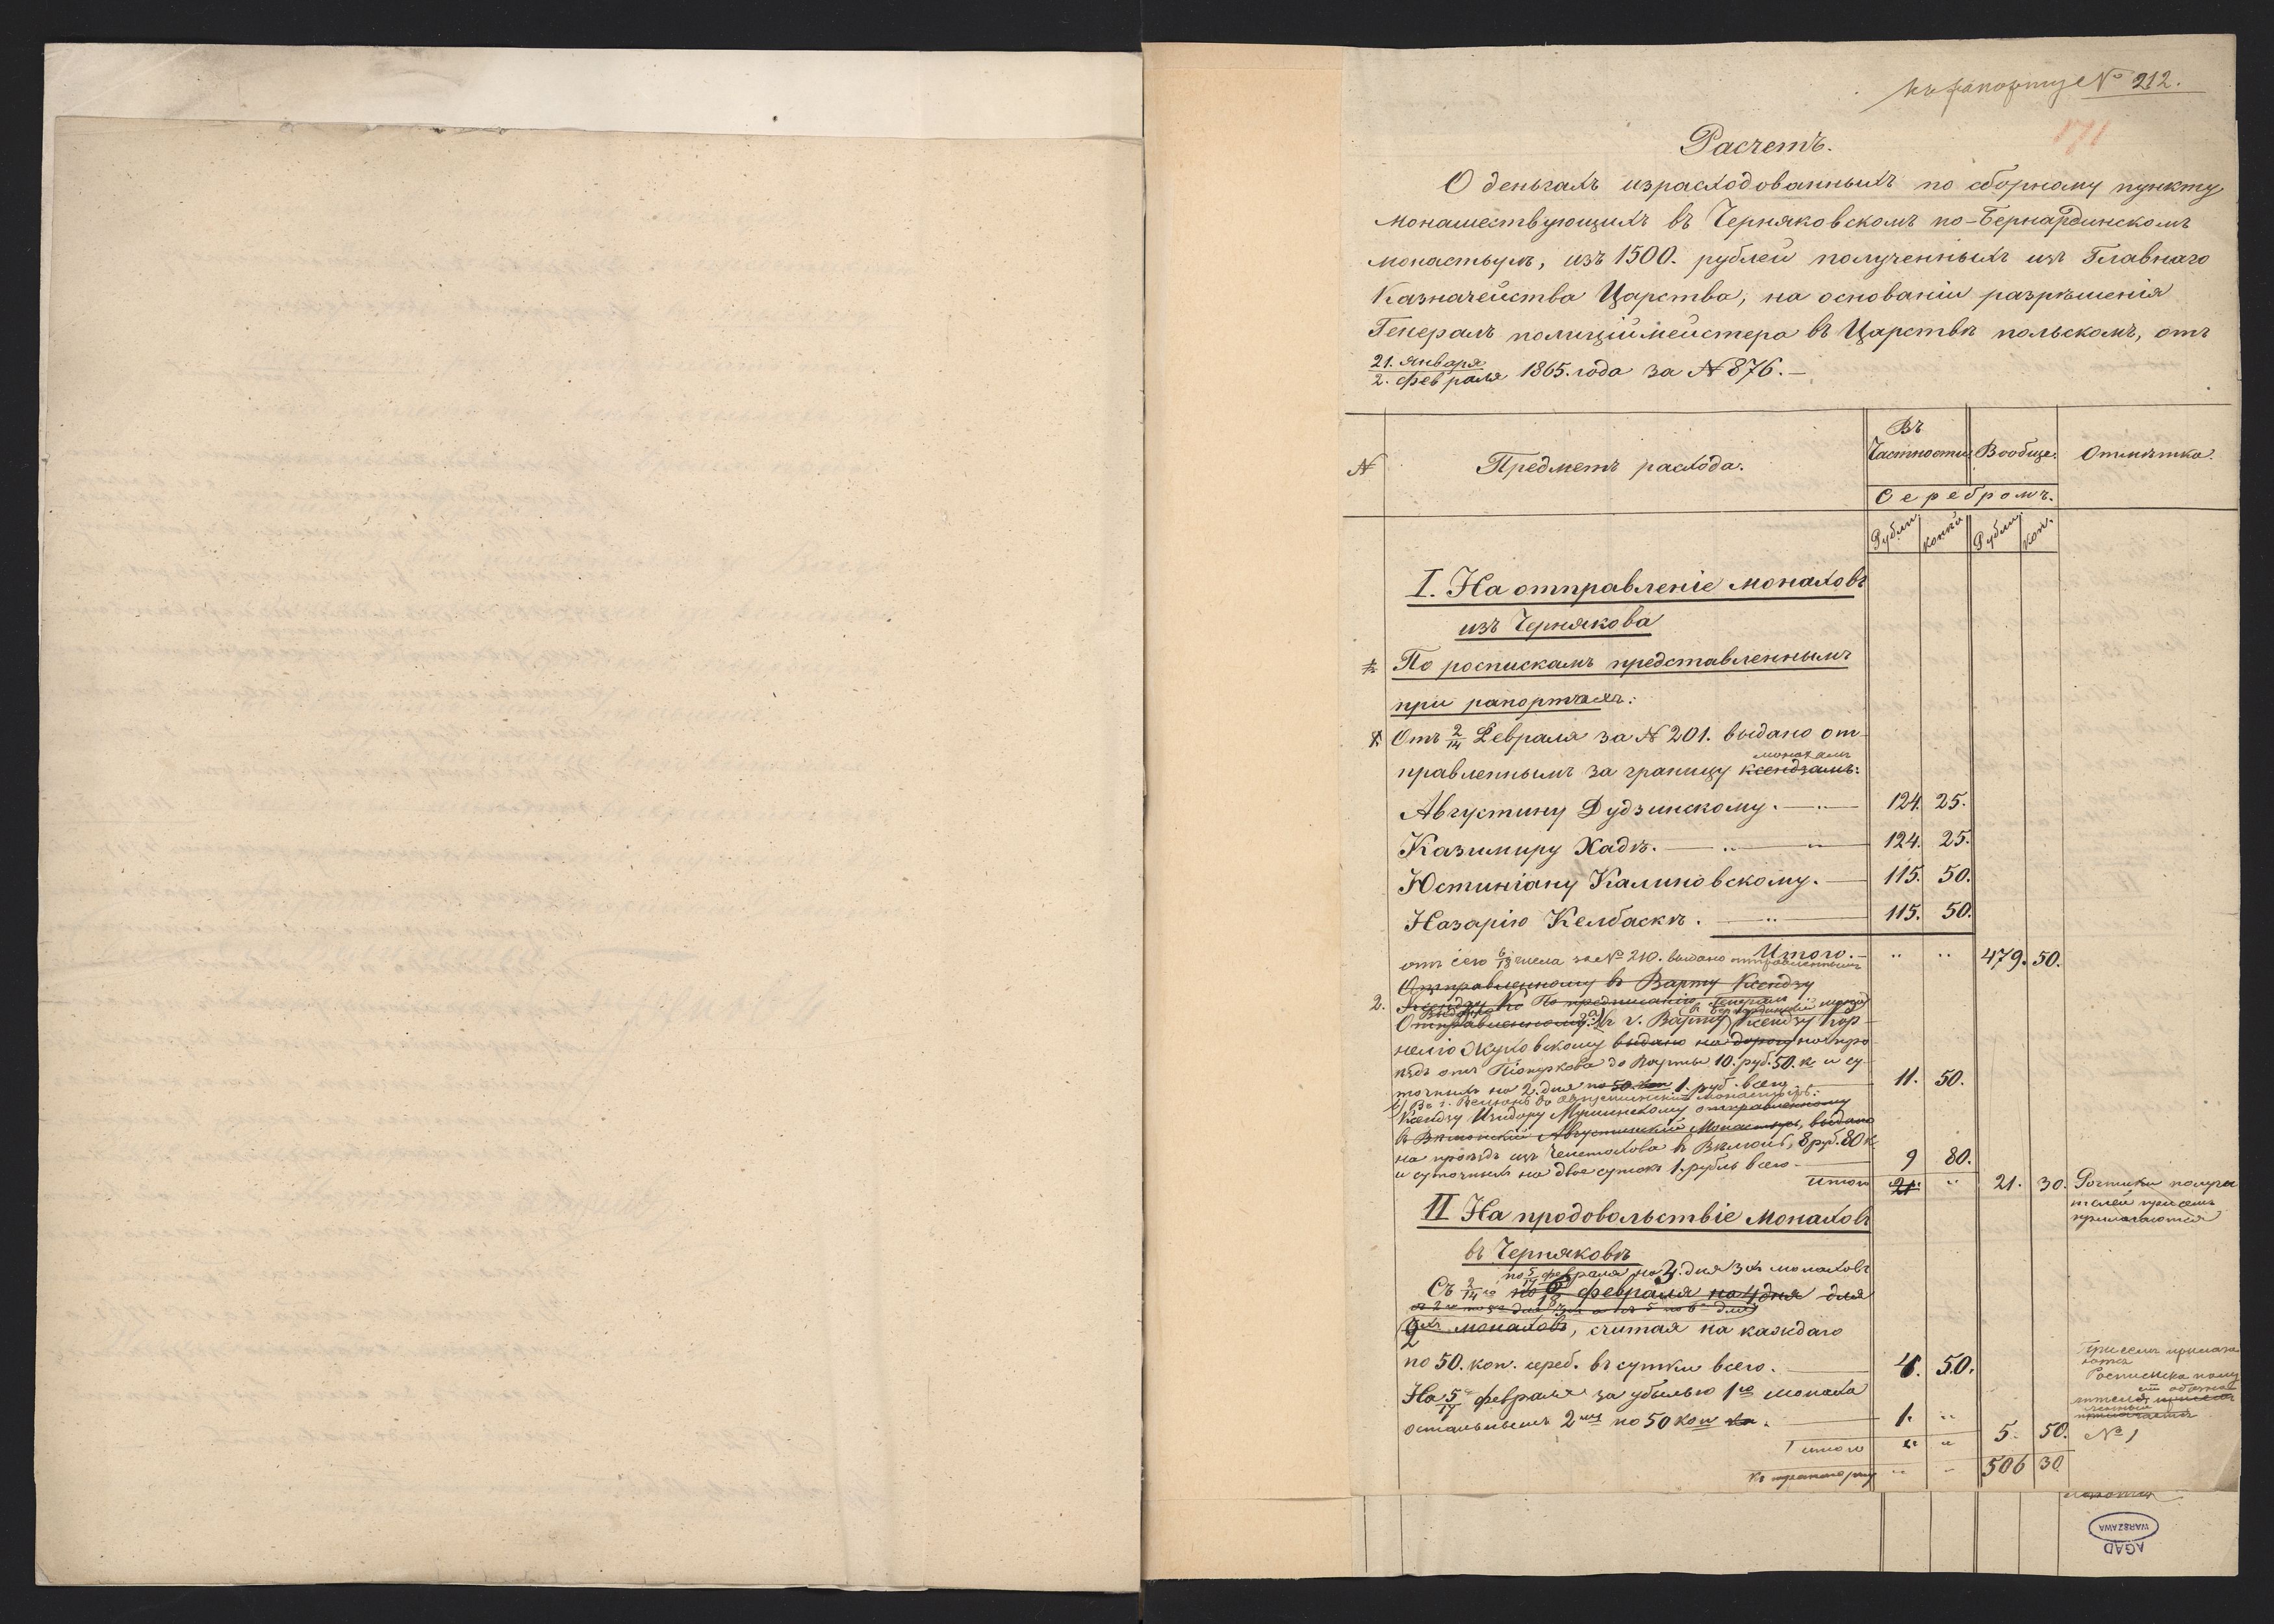 къ рапорту № 212.
171
Расчетъ.
О деньгахъ израсходованныхъ по сборному пункту
монашествующихъ въ Черняковскомъ по-Бернардинскомъ
монастырѣ, изъ 1500. рублей полученныхъ изъ Главнаго
Казначейства Царства, на основаніи разрѣшенія
Генералъ полиціймейстера въ Царствѣ польскомъ, отъ
21. января / 2. февраля 1865. года за № 876.—
№ Предметъ расхода. Въ Частности Вообще. Отмѣтка.
Серебромъ.
Рубли копки Рубли коп.
I. На отправленіе монаховъ
изъ Чернякова
По роспискамъ представленнымъ
при рапортахъ:
Отъ 2/14 Февраля за № 201. выдано от-
монахамъ
правленнымъ за границу ксендзамъ:
Августину Дудзинскому. 124. 25.
Казимиру Хадѣ. 124. 25.
Юстиніану Калиновскому. 115. 50.
Назарію Келбаскѣ. 115. 50.
Итого. 479. 50.
отъ сего 6/18 числа за № 210. выдано отправленнымъ
Отправленному въ Варту Ксендзу
2. Ксендзу По предписанію Генерала
Отправленному въ г. Варту Ксендзу Кор-
нелію Жуковскому выдано на дорогу на про-
ѣздъ отъ Піотркова до Варты 10. руб. 50. к. и су-
точныхъ на 2. дня по 50. коп 1. руб. всего 11. 50.
б) Въ г. Велюнь въ Августинскій монастырь:
Ксендзу Изидору Мршинскому отправленному
въ Вѣлюнскій Августинскій Монастырь, выдано
на проѣздъ изъ Ченстохова въ Вѣлюнь, 8 руб. 80 к
и суточныхъ на двое сутокъ 1. рубль всего 9 80.
Итого 21. 21. 30. Росписки получа
телей при семъ
прилагаются
II На продовольствіе Монаховъ
въ Черняковѣ
по 5/17 февраля на 3. дня 3хъ монаховъ
Съ 2/14го по 6/18 февраля на 4 дня для
монаховъ, считая на каждаго
по 50. коп. сереб. въ сутки всего. 4. 50.
При семъ прилага
ются
Росписка полу
На 5/17 февраля за убылью 1го монаха
остальнымъ 2мъ по 50 коп 1.
Итого 5. 50. № 1
Къ транспорту 506 30
AGAD
WARSZAWA